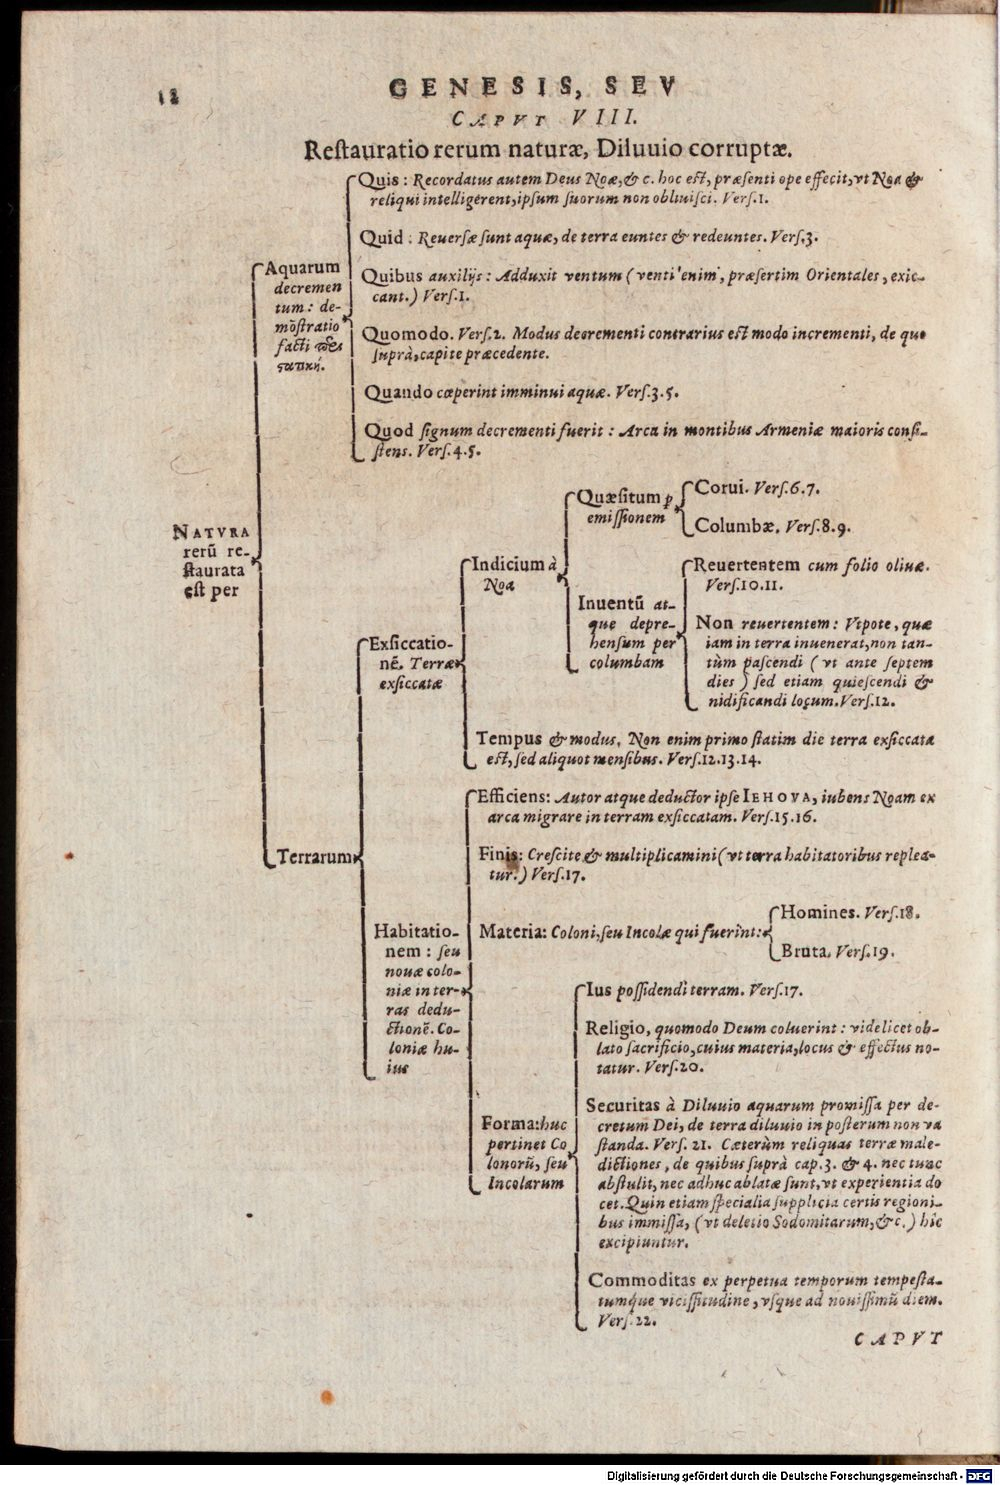 12
GENESIS, SEV
CAPVT VIII.
Reſtauratio rerum naturæ, Diluuio corruptæ.
NATVRA
rerū re-
ſtaurata
eſt per
Aquarum
decremen
tum: de-
mōſtratio
facti
Quis: Recordatus autem Deus Noæ, & c. hoc eſt, præſenti ope effecit, vt Noa &
reliqui intelligerent, ipſum ſuorum non obliuiſci. Verſ.1.
Quid: Reuerſæ ſunt aquæ, de terra euntes & redeuntes. Verſ.3.
Quibus auxilijs: Adduxit ventum (venti enim, præſertim Orientales, exic-
cant.) Verſ.1.
Quomodo. Verſ.2. Modus decrementi contrarius eſt modo incrementi, de quo
ſuprà, capite præcedente.
Quando cœperint imminui aquæ. Verſ.3.5.
Quod ſignum decrementi fuerit: Arca in montibus Armeniæ maioris conſi-
ſtens. Verſ.4.5.
Terrarum
Exſiccatio-
nē. Terræ
exſiccatæ
Indicium à
Noa
Quæſitum ꝑ
emiſſionem
Corui. Verſ.6.7.
Columbæ. Verſ.8.9.
Inuentū at-
que depre-
henſum per
columbam
Reuertentem cum folio oliuæ.
Verſ.10.11.
Non reuertentem: Vtpote, quæ
iam in terra inuenerat, non tan-
tùm paſcendi (vt ante ſeptem
dies) ſed etiam quieſcendi &
nidificandi locum. Verſ.12.
Tempus & modus. Non enim primo ſtatim die terra exſiccata
eſt, ſed aliquot menſibus. Verſ.12.13.14.
Habitatio-
nem: ſeu
nouæ colo-
niæ in ter-
ras dedu-
ctionē. Co-
loniæ hu-
ius
Efficiens: Autor atque deductor ipſe IEHOVA, iubens Noam ex
arca migrare in terram exſiccatam. Verſ.15.16.
Finis: Creſcite & multiplicamini (vt terra habitatoribus replea-
tur.) Verſ.17.
Materia: Coloni, ſeu Incolæ qui fuerint:
Homines. Verſ.18.
Bruta. Verſ.19.
Forma: huc
pertinet Co
lonorū, ſeu
Incolarum
Ius poſſidendi terram. Verſ.17.
Religio, quomodo Deum coluerint: videlicet ob-
lato ſacrificio, cuius materia, locus & effectus no-
tatur. Verſ.20.
Securitas à Diluuio aquarum promiſſa per de-
cretum Dei, de terra diluuio in poſterum non va
ſtanda. Verſ. 21. Cæterùm reliquas terræ male-
dictiones, de quibus ſuprà cap.3. & 4. nec tunc
abſtulit, nec adhuc ablatæ ſunt, vt experientia do
cet. Quin etiam ſpecialia ſupplicia certis regioni-
bus immiſſa, (vt deletio Sodomitarum, &c.) hîc
excipiuntur.
Commoditas ex perpetua temporum tempeſta-
tumque viciſſitudine, vſque ad nouiſſimū diem.
Verſ.22.
CAPVT
Digitalisierung gefördert durch die Deutsche Forschungsgemeinschaft - DFG